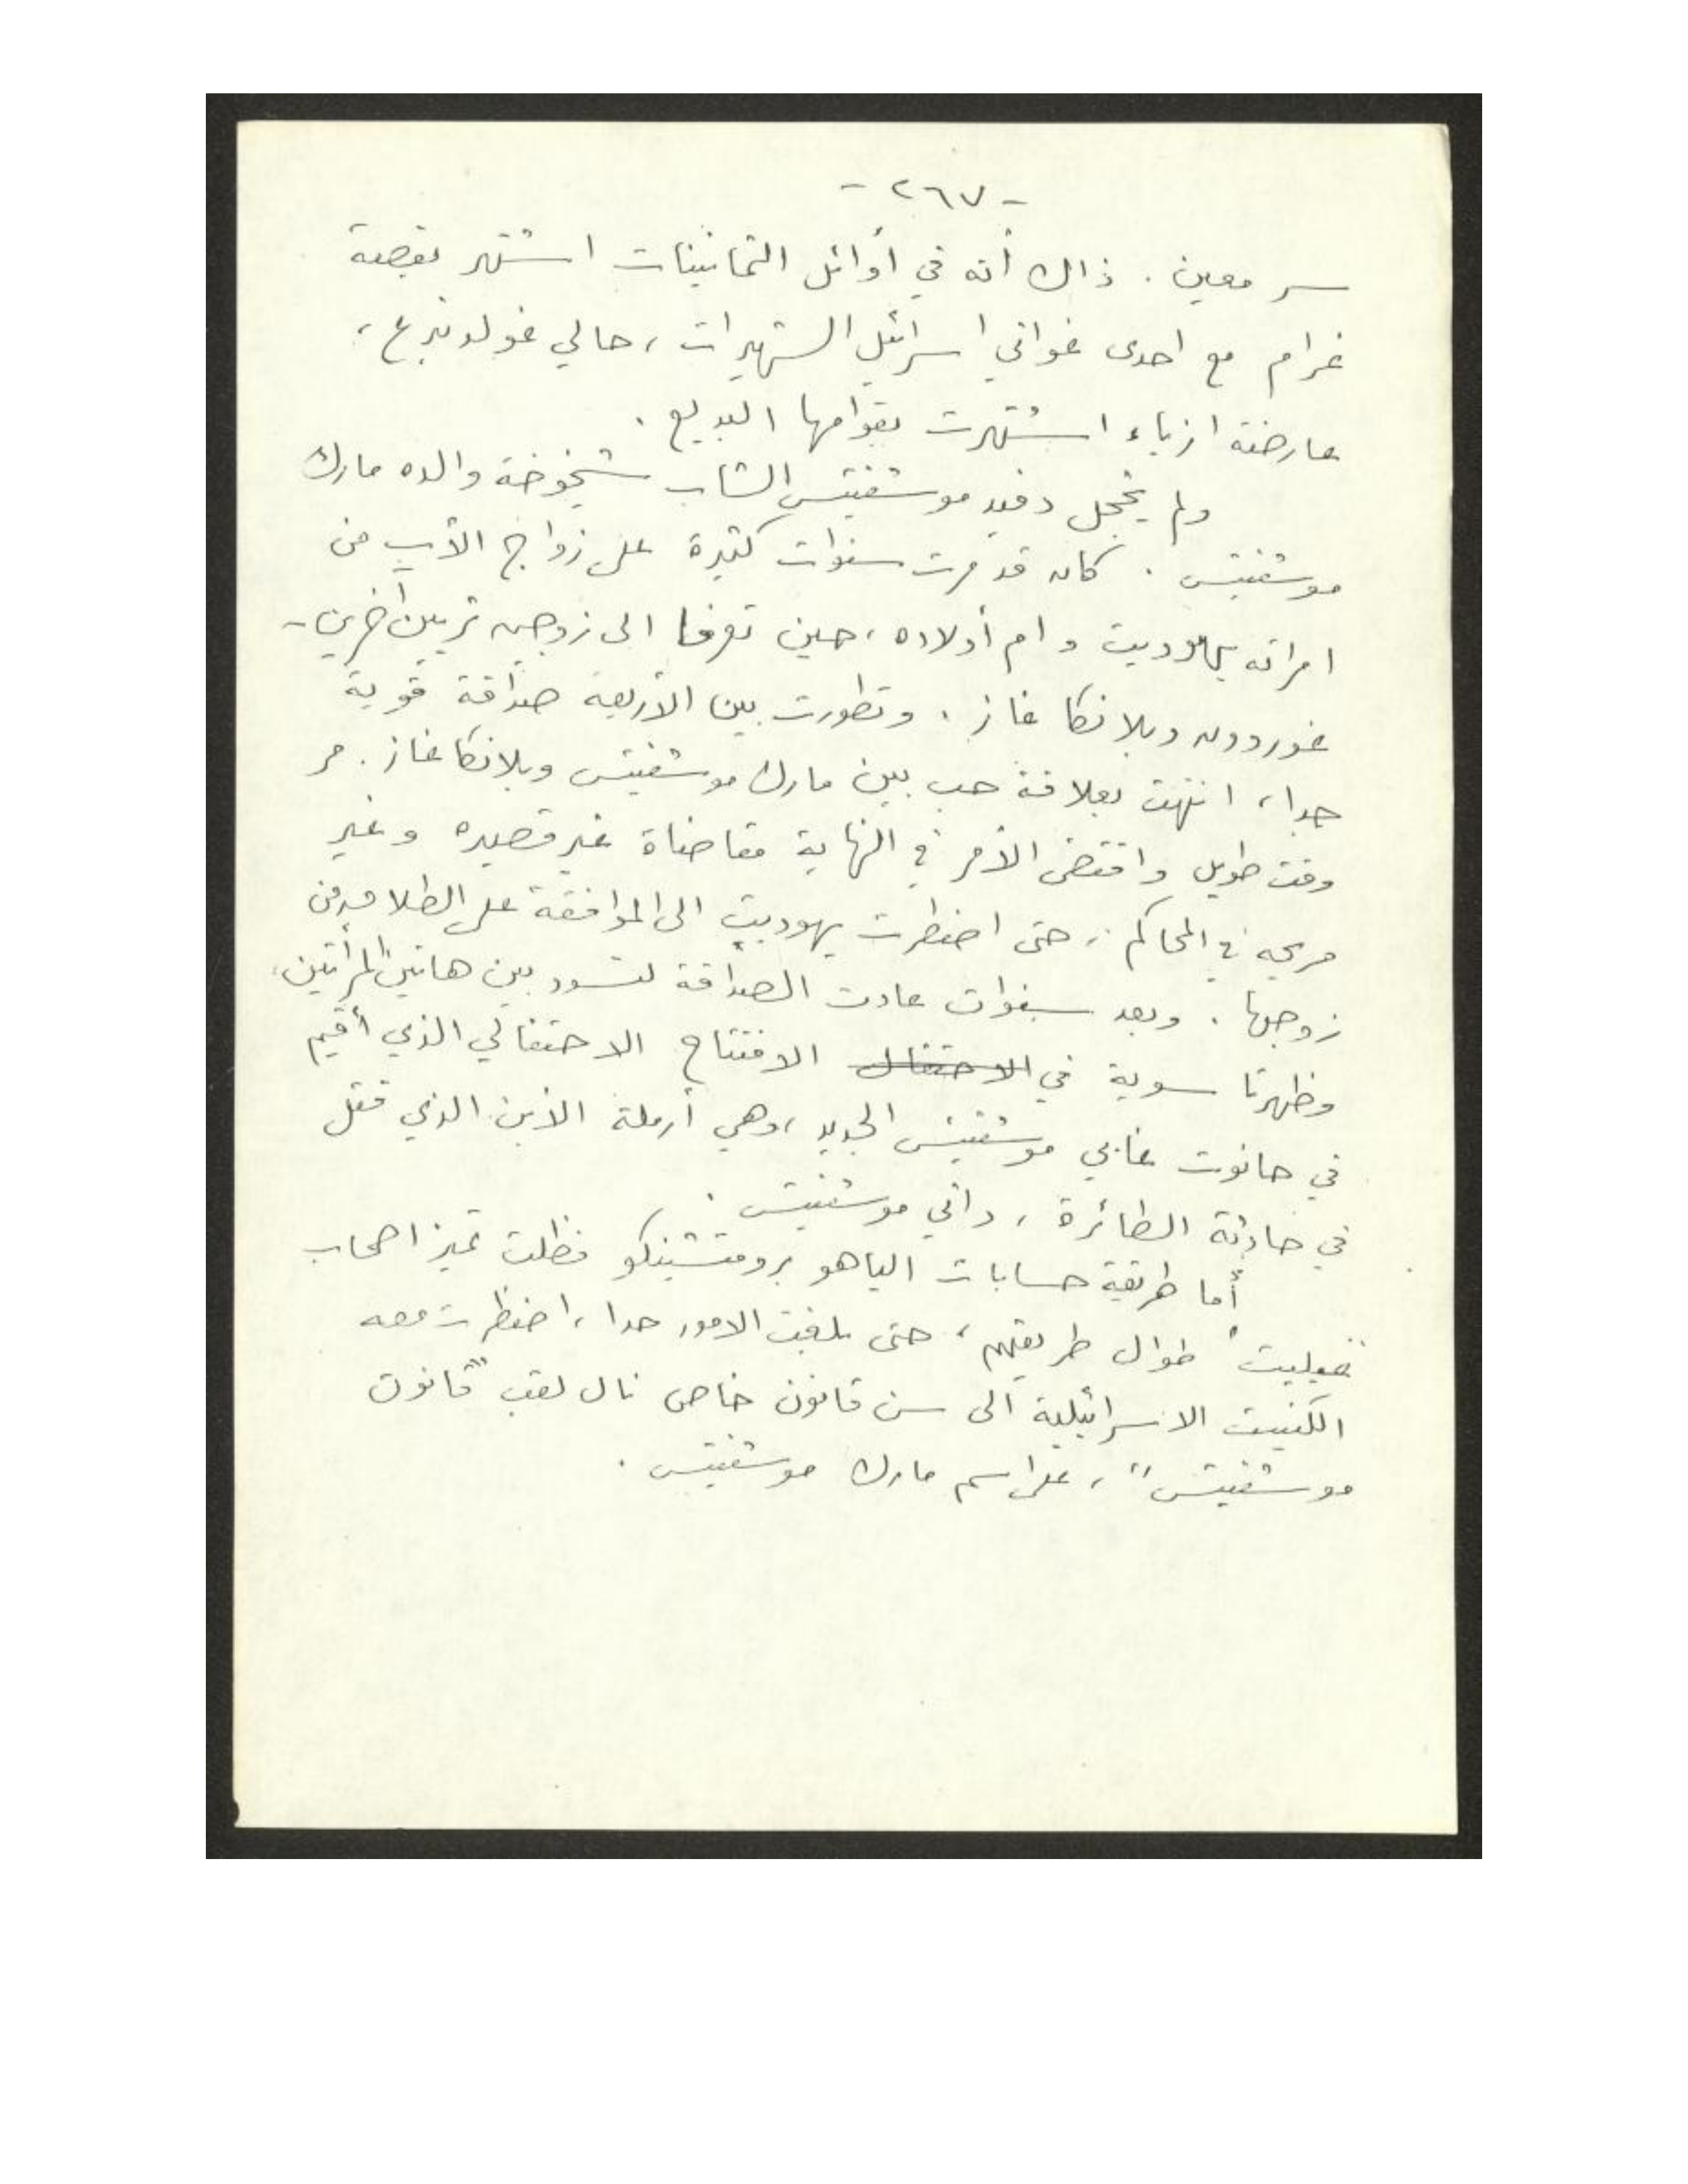 - ٢٦٧ -
سر معين. ذلك أنه في أوائل الثمانينات اشتهر بقصة
غرام مع احدى غواني اسرائيل الشهيرات، حالي غولدنبرغ،
عارضة ازياء اشتهرت بقوامها البديع.
ولم يخجل دفيد موشفيتس الشاب شيخوخة والده مارك
موشفيتس. كان قد مرت سنوات كثيرة على زواج الأب من
امراته يهوديت وام أولاده، حين تعرفا الى زوجين ثريين آخرين -
غوردون وبلانكا غاز. وتطورت بين الأربعة صداقة قوية
جدا، انتهت بعلاقة حب بين مارك موشفيتس وبلانكا غاز. مر
وقت طويل واقتضى الأمر في النهاية مقاضاة غير قصيره وغير
مريحه في المحاكم، حتى اضطرت يهوديت الى الموافقة على الطلاق من
زوجها. وبعد سنوات عادت الصداقة لتسود بين هاتين المرأتين،
وظهرتا سوية في الاحتفال الافتتاح الاحتفالي الذي أقيم
في حانوت غابي موشفيتس الجديد، وهي أرملة الابن الذي قتل
في حادثة الطائرة، داني موشفيتس.
أما طريقة حسابات الياهو بروفتشينكو فظلت تميز اصحاب
"عيليت" طوال طريقهم، حتى بلغت الامور حدا، اضطرت معه
الكنيست الاسرائيلية الى سن قانون خاص نال لقب "قانون
موشفيتس"، على اسم مارك موشفيتس.